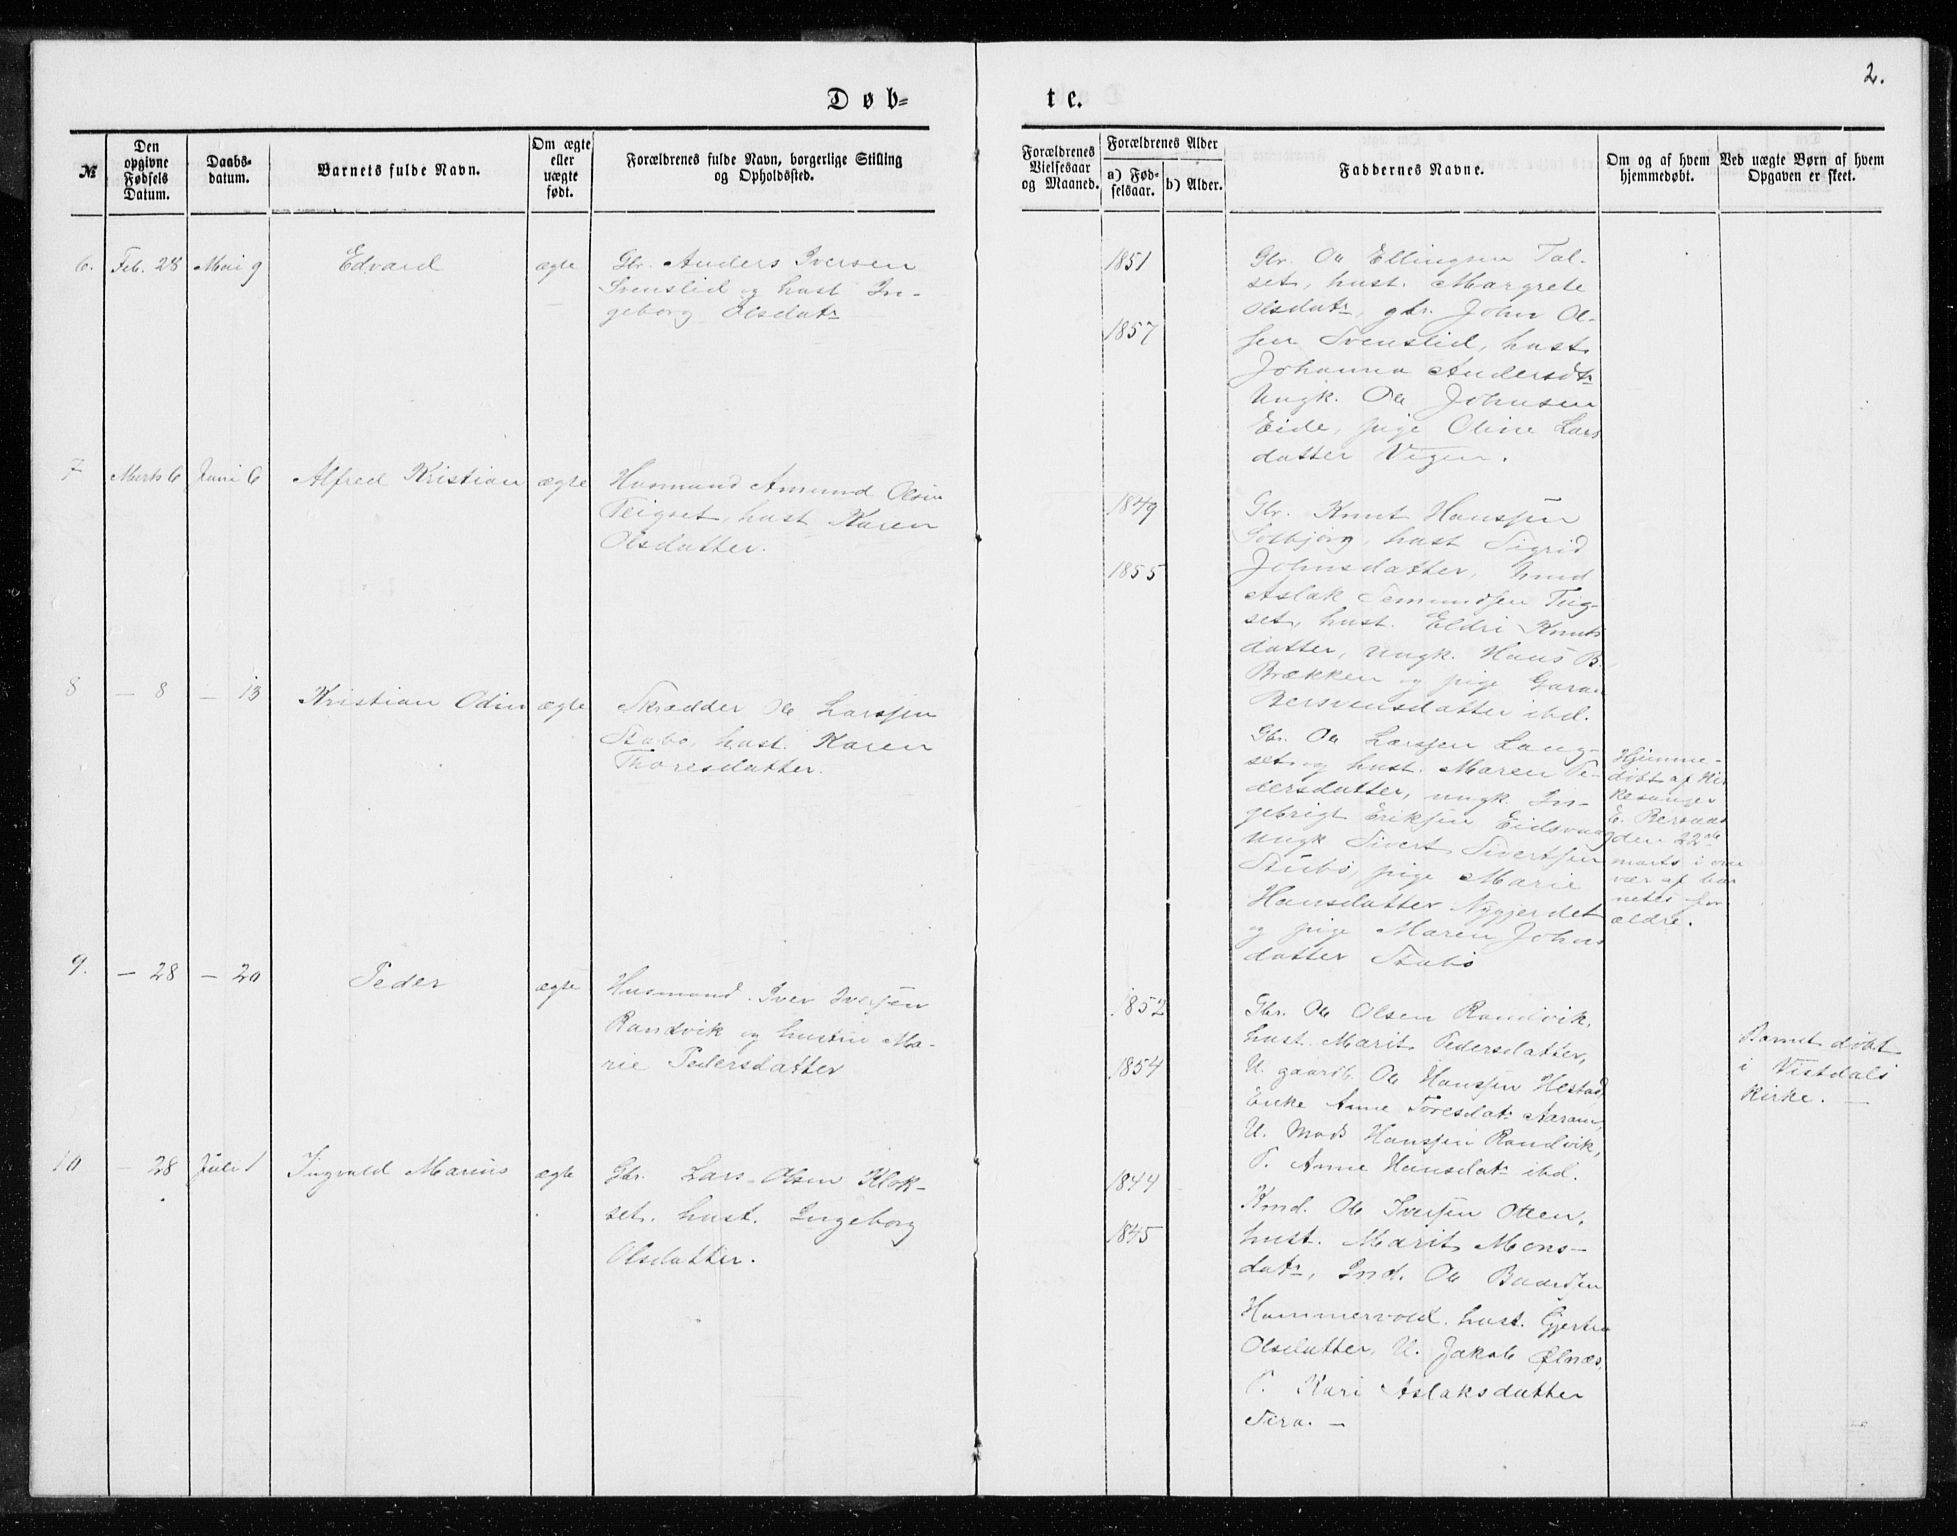 2.
Døb-
te.
№
Den opgivne Fødsels Datum.
Daabs-datum.
Barnets fulde Navn.
Om ægte eller uægte født.
Forældrenes fulde Navn, borgerlige Stilling og Opholdssted.
Forældrenes Vielsesaar og Maaned.
Forældrenes Alder
a) Fød-selsaar.
b) Alder.
Faddernes Navne.
Om og af hvem hjemmedøbt.
Ved uægte Børn af hvem Opgaven er skeet.
6. Feb. 28 Mai 9 Edvard ægte
Gbr. Anders Iversen
Svenslid og hust. In-
geborg Olsdatr
1851
1857
Gbr. Ole Ellingsen Tal-
set, hust. Margrete
Olsdatr, gbr. John Ol-
sen Svenslid, hust.
Johanna Andersdtr
Ungk. Ole Johnsen
Eide, pige Oline Lars
datter Vegen.
7 Marts 6 Juni 6 Alfred Kristian ægte
Husmand Amund Olsen
Teigset, hust Karen
Olsdatter.
1849
1855
Gbr. Knut Hanssen
Solbjørg, hust Sigrid
Johnsdatter,
Aslak Semundsen Teig-
set, hust. Eldri Knuts
datter, ungk. Hans B.
Brækken og pige
Bersvensdatter ibd.
8 — 8 — 13 Kristian Odin ægte
Skrædder Ole Larssen
Stubø, hust. Karen
Thoresdatter.
Gbr. Ole Larssen Lang-
set og hust. Maren Pe-
dersdatter, ungk. In-
gebrigt Eriksen Eidsvaag
ungk Sivert Sivertsen
Stubø, pige Marie
Hansdatter Nygjerdet
og pige Maren Johns
datter Stubø
Hjemme-
døbt af Kir
kesanger
E. Bersaas
den 22de
marts i over
vær af bar
nets for
ældre.
9. — 28 — 20 Peder ægte
Husmand Iver Iversen
Randvik og hustru Ma-
rie Pedersdatter
1852
1854
Gbr. Ole Olsen Randvik,
hust. Marit Pedersdatter,
U. gaardb. Ole Hanssen Hestad,
Enke Anne Toresdatr
U. Mads Hanssen Randvik,
P. Anne Hansdatr ibd.
Barnet døbt
i Vistdals
Kirke. —
10 — 28 Juli 1 Ingvald Marius ægte
Gbr. Lars Olsen Klok-
set, hust. Ingeborg
Olsdatter.
1844
1845
Kmd. Ole Iversen Otten,
hust. Marit Mons-
datr, Ind. Ole Baardsen
Hammervold, hust. Gjertru
Olsdatter, U. Jakob Ølnæs,
P. Kari Aslaksdatter
Sira. —